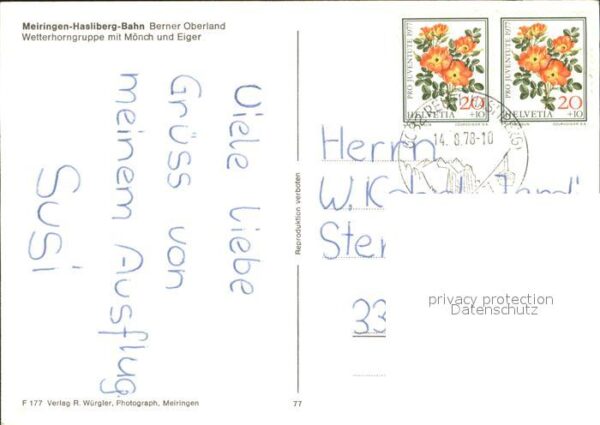 Meiringen-Hasliberg-Bahn Berner Oberland
Wetterhorngruppe mit Mönch und Eiger
Viele liebe
Grüss von
meinem Ausflug
Susi
F 177 Verlag R. Würgler, Photograph, Meiringen
77
Reproduktion verboten
PRO JUVENTUTE 1977
20
+10
HELVETIA
PRO JUVENTUTE 1977
20
+10
HELVETIA
14.8.78-10
Herrn
W.
Ster
33
privacy protection
Datenschutz